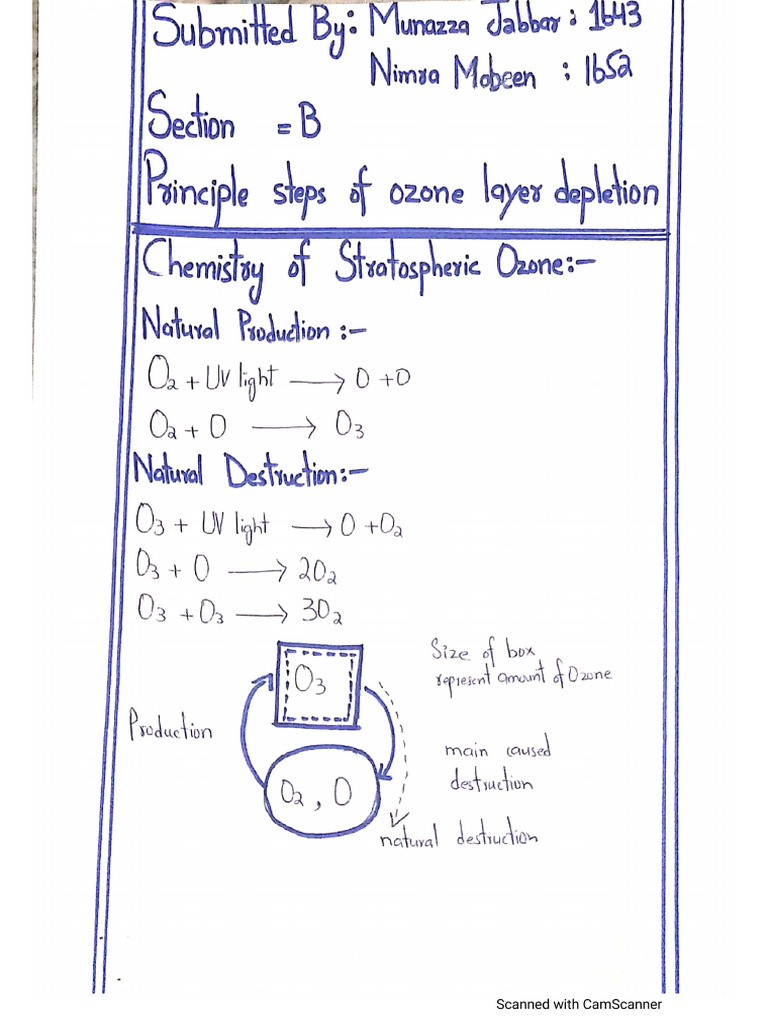 Submitted By: Munazza Jabbar: 1643
Nimra Mobeen : 1652
Section = B
Principle steps of ozone layer depletion
Chemistry of Stratospheric Ozone:-
Natural Production :-
O2 + UV light ⟶ O + O
O2 + O ⟶ O3
Natural Destruction:-
O3 + UV light ⟶ O + O2
O3 + O ⟶ 2O2
O3 + O3 ⟶ 3O2
Size of box
represent amount of Ozone
O3
Production
main caused
destruction
O2 , O
natural destruction
Scanned with CamScanner